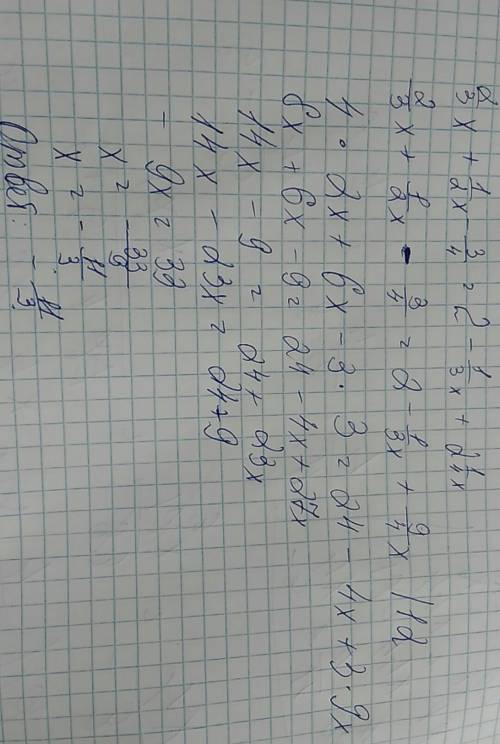 2/3 x + 1/2 x - 3/4 = 2 - 1/3 x + 2 1/4 x
2/3 x + 1/2 x - 3/4 = 2 - 1/3 x + 9/4 x | 12
4 · 2x + 6x - 3 · 3 = 24 - 4x + 3 · 9x
8x + 6x - 9 = 24 - 4x + 27x
14x - 9 = 24 + 23x
14x - 23x = 24 + 9
- 9x = 33
x = - 33/9
x = - 11/3
Ответ: - 11/3